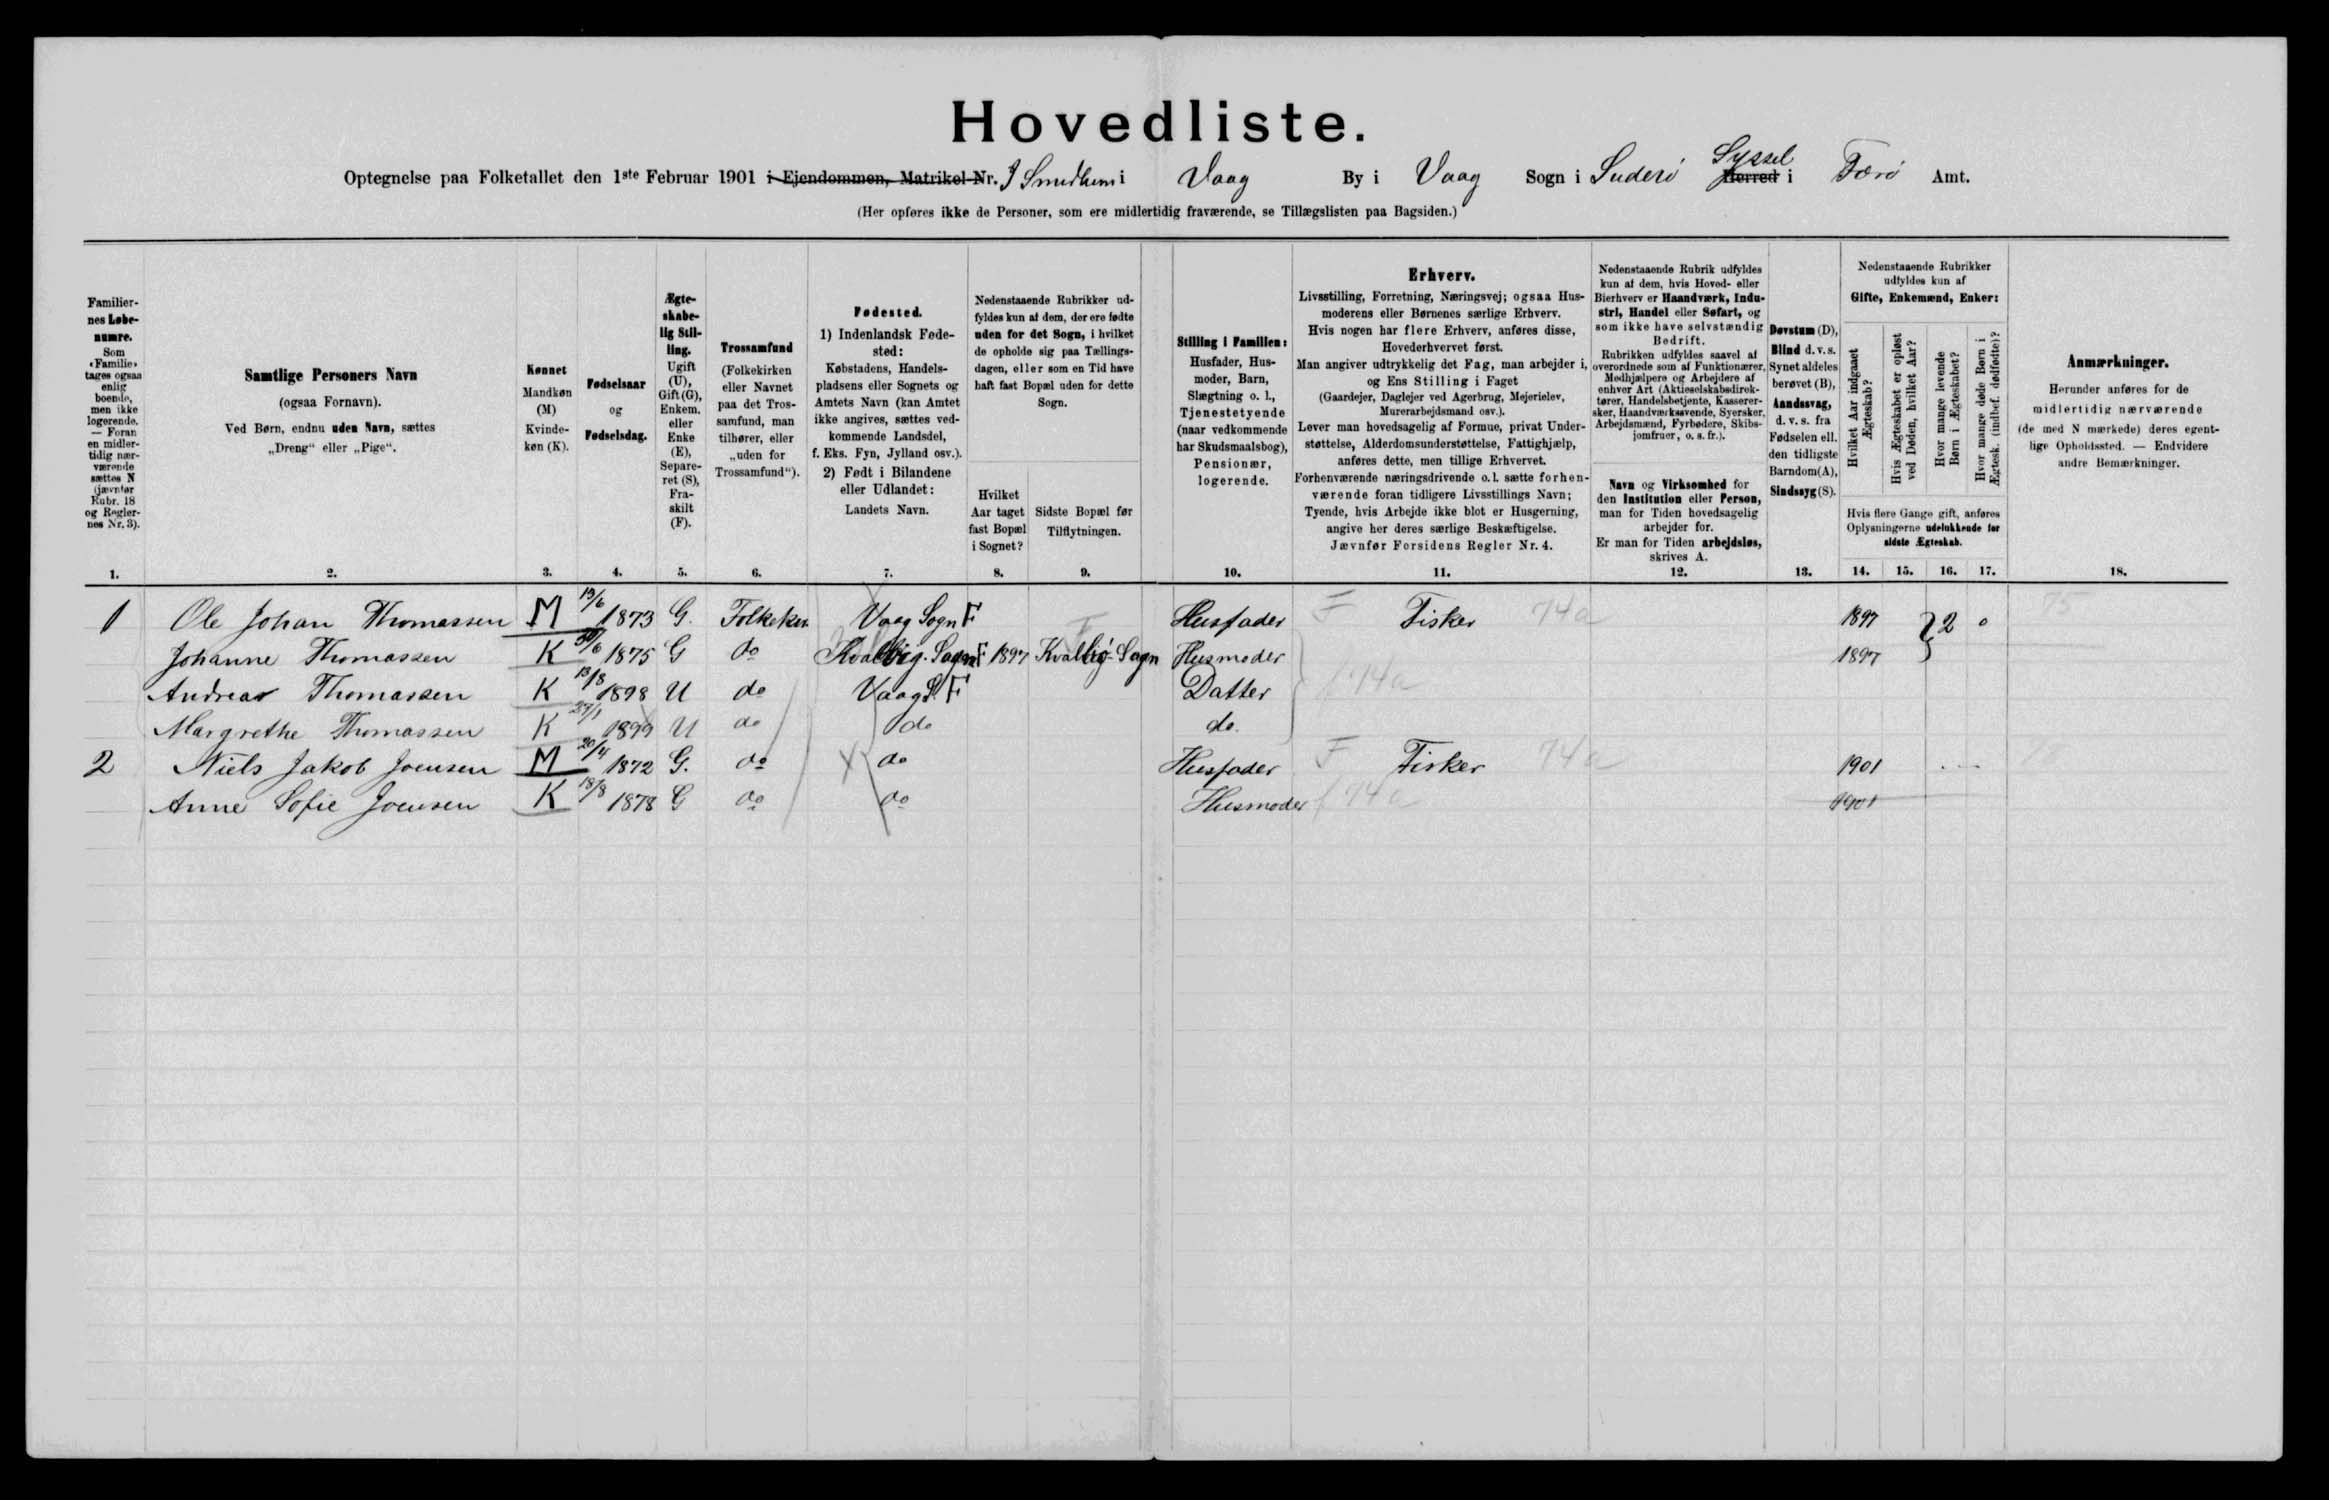 Hovedliste.
Optegnelse paa Folketallet den 1ste Februar 1901 i Ejendommen, Matrikel-Nr. I Smidhem i Vaag By i Vaag Sogn i Suderø Syssel Herred i Færø Amt.
(Her opføres ikke de Personer, som ere midlertidig fraværende, se Tillægslisten paa Bagsiden.)
Familier-
nes Løbe-
numre.
Som
«Familie»
tages ogsaa
enlig
boende,
men ikke
logerende.
— Foran
en midler-
tidig nær-
værende
sættes N
(jævnfør
Rubr. 18
og Regler-
nes Nr. 3).
1.
Samtlige Personers Navn
(ogsaa Fornavn).
Ved Børn, endnu uden Navn, sættes
„Dreng“ eller „Pige“.
2.
Kønnet
Mandkøn
(M)
Kvinde-
køn (K).
3.
Fødselsaar
og
Fødselsdag.
4.
Ægte-
skabe-
lig Stil-
ling.
Ugift
(U),
Gift (G),
Enkem.
eller
Enke
(E),
Separe-
ret (S),
Fra-
skilt
(F).
5.
Trossamfund
(Folkekirken
eller Navnet
paa det Tros-
samfund, man
tilhører, eller
„uden for
Trossamfund“).
6.
Fødested.
1) Indenlandsk Føde-
sted:
Købstadens, Handels-
pladsens eller Sognets og
Amtets Navn (kan Amtet
ikke angives, sættes ved-
kommende Landsdel,
f. Eks. Fyn, Jylland osv.).
2) Født i Bilandene
eller Udlandet:
Landets Navn.
7.
Nedenstaaende Rubrikker ud-
fyldes kun af dem, der ere fødte
uden for det Sogn, i hvilket
de opholde sig paa Tællings-
dagen, eller som en Tid have
haft fast Bopæl uden for dette
Sogn.
Hvilket
Aar taget
fast Bopæl
i Sognet?
8.
Sidste Bopæl før
Tilflytningen.
9.
Stilling i Familien:
Husfader, Hus-
moder, Barn,
Slægtning o. l.,
Tjenestetyende
(naar vedkommende
har Skudsmaalsbog),
Pensionær,
logerende.
10.
Erhverv.
Livsstilling, Forretning, Næringsvej; ogsaa Hus-
moderens eller Børnenes særlige Erhverv.
Hvis nogen har flere Erhverv, anføres disse,
Hovederhvervet først.
Man angiver udtrykkelig det Fag, man arbejder i,
og Ens Stilling i Faget
(Gaardejer, Daglejer ved Agerbrug, Mejerielev,
Murerarbejdsmand osv.).
Lever man hovedsagelig af Formue, privat Under-
støttelse, Alderdomsunderstøttelse, Fattighjælp,
anføres dette, men tillige Erhvervet.
Forhenværende næringsdrivende o. l. sætte forhen-
værende foran tidligere Livsstillings Navn;
Tyende, hvis Arbejde ikke blot er Husgerning,
angive her deres særlige Beskæftigelse.
Jævnfør Forsidens Regler Nr. 4.
11.
Nedenstaaende Rubrik udfyldes
kun af dem, hvis Hoved- eller
Bierhverv er Haandværk, Indu-
stri, Handel eller Søfart, og
som ikke have selvstændig
Bedrift.
Rubrikken udfyldes saavel af
overordnede som af Funktionærer,
Medhjælpere og Arbejdere af
enhver Art (Aktieselskabsdirek-
tører, Handelsbetjente, Kasserer-
sker, Haandværkssvende, Syersker,
Arbejdsmænd, Fyrbødere, Skibs-
jomfruer, o. s. fr.).
Navn og Virksomhed for
den Institution eller Person,
man for Tiden hovedsagelig
arbejder for.
Er man for Tiden arbejdsløs,
skrives A.
12.
Døvstum (D),
Blind d. v. s.
Synet aldeles
berøvet (B),
Aandssvag,
d. v. s. fra
Fødselen ell.
den tidligste
Barndom (A),
Sindssyg (S).
13.
Nedenstaaende Rubrikker
udfyldes kun af
Gifte, Enkemænd, Enker:
Hvilket Aar indgaaet
Ægteskab?
Hvis Ægteskabet er opløst
ved Døden, hvilket Aar?
Hvor mange levende
Børn i Ægteskabet?
Hvor mange døde Børn i
Ægtesk. (indbef. dødfødte)?
Hvis flere Gange gift, anføres
Oplysningerne udelukkende for
sidste Ægteskab.
14. 15. 16. 17.
Anmærkninger.
Herunder anføres for de
midlertidig nærværende
(de med N mærkede) deres egent-
lige Opholdssted. — Endvidere
andre Bemærkninger.
18.
1 Ole Johan Thomassen M 13/6 1873 G. Folkekir. Vaag Sogn F Husfader F Fisker 74a 1897 2 0 75
Johanne Thomassen K 30/6 1875 G do Kvalbig-Sogn F 1897 Kvalbig-Sogn Husmoder 1897
Andrear Thomassen K 13/8 1898 U do Vaag S. F Datter 74a
Margrethe Thomassen K 27/1 1899 U do do do.
2 Niels Jakob Joensen M 20/4 1872 G. do do Husfader F Fisker 74a 1901
Anne Sofie Joensen K 18/8 1878 G do do Husmoder 74a 1901